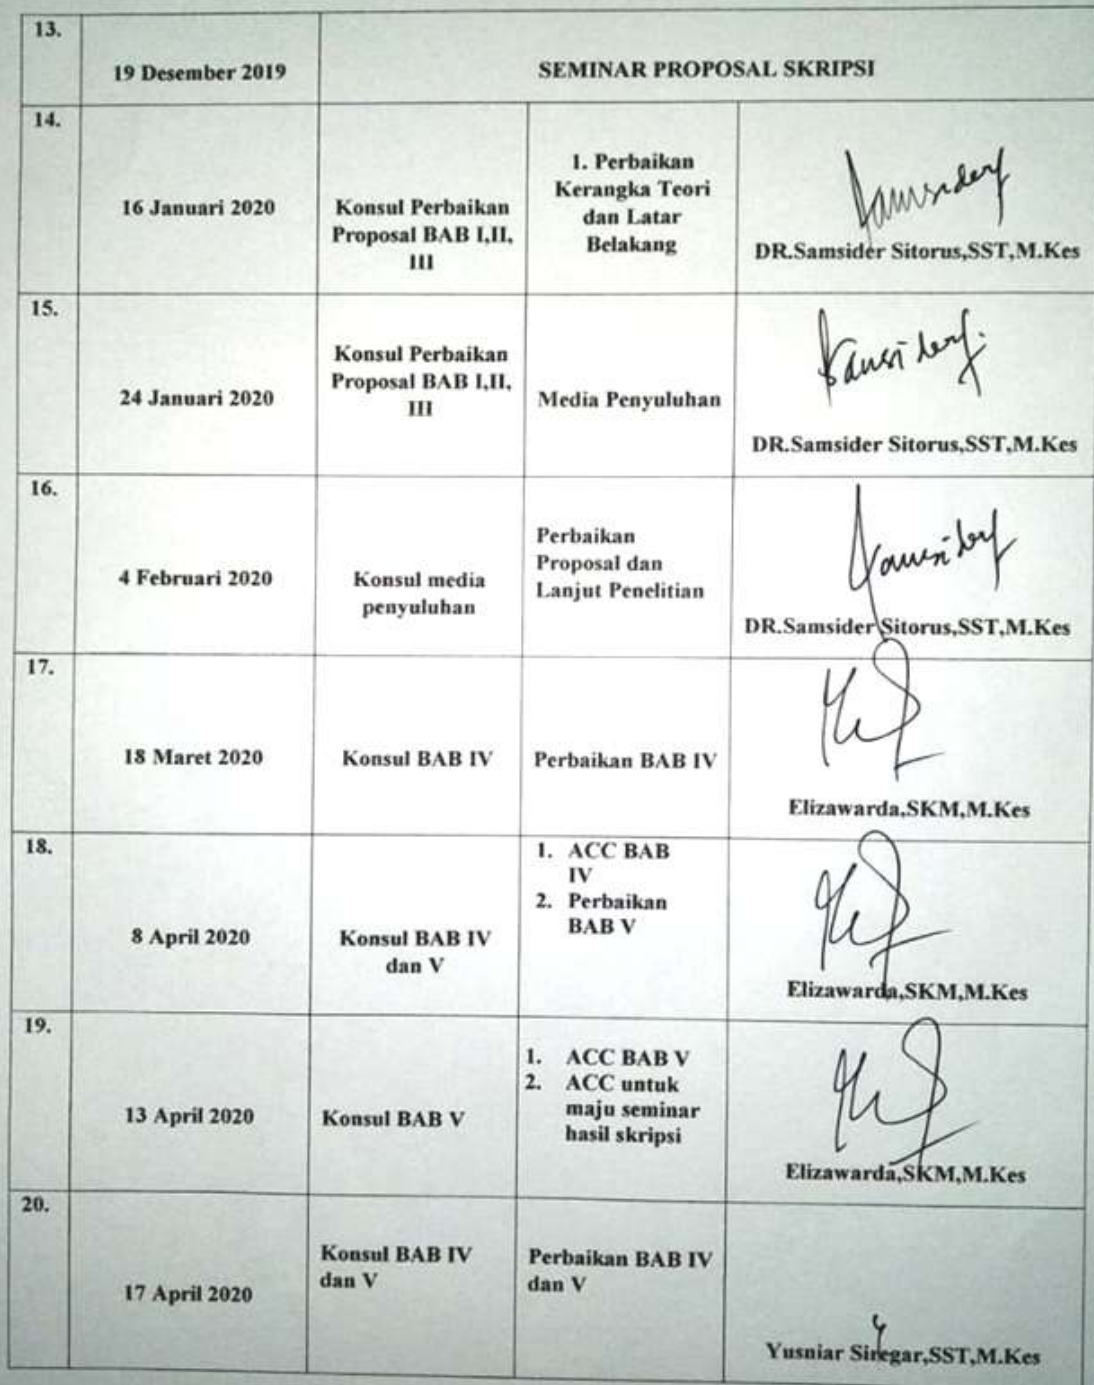 13.
19 Desember 2019
SEMINAR PROPOSAL SKRIPSI
14.
16 Januari 2020
Konsul Perbaikan
Proposal BAB I,II,
III
1. Perbaikan
Kerangka Teori
dan Latar
Belakang
DR.Samsider Sitorus,SST,M.Kes
15.
24 Januari 2020
Konsul Perbaikan
Proposal BAB I,II,
III
Media Penyuluhan
DR.Samsider Sitorus,SST,M.Kes
16.
4 Februari 2020
Konsul media
penyuluhan
Perbaikan
Proposal dan
Lanjut Penelitian
DR.Samsider Sitorus,SST,M.Kes
17.
18 Maret 2020
Konsul BAB IV
Perbaikan BAB IV
Elizawarda,SKM,M.Kes
18.
8 April 2020
Konsul BAB IV
dan V
1. ACC BAB
IV
2. Perbaikan
BAB V
Elizawarda,SKM,M.Kes
19.
13 April 2020
Konsul BAB V
1. ACC BAB V
2. ACC untuk
maju seminar
hasil skripsi
Elizawarda,SKM,M.Kes
20.
17 April 2020
Konsul BAB IV
dan V
Perbaikan BAB IV
dan V
Yusniar Siregar,SST,M.Kes